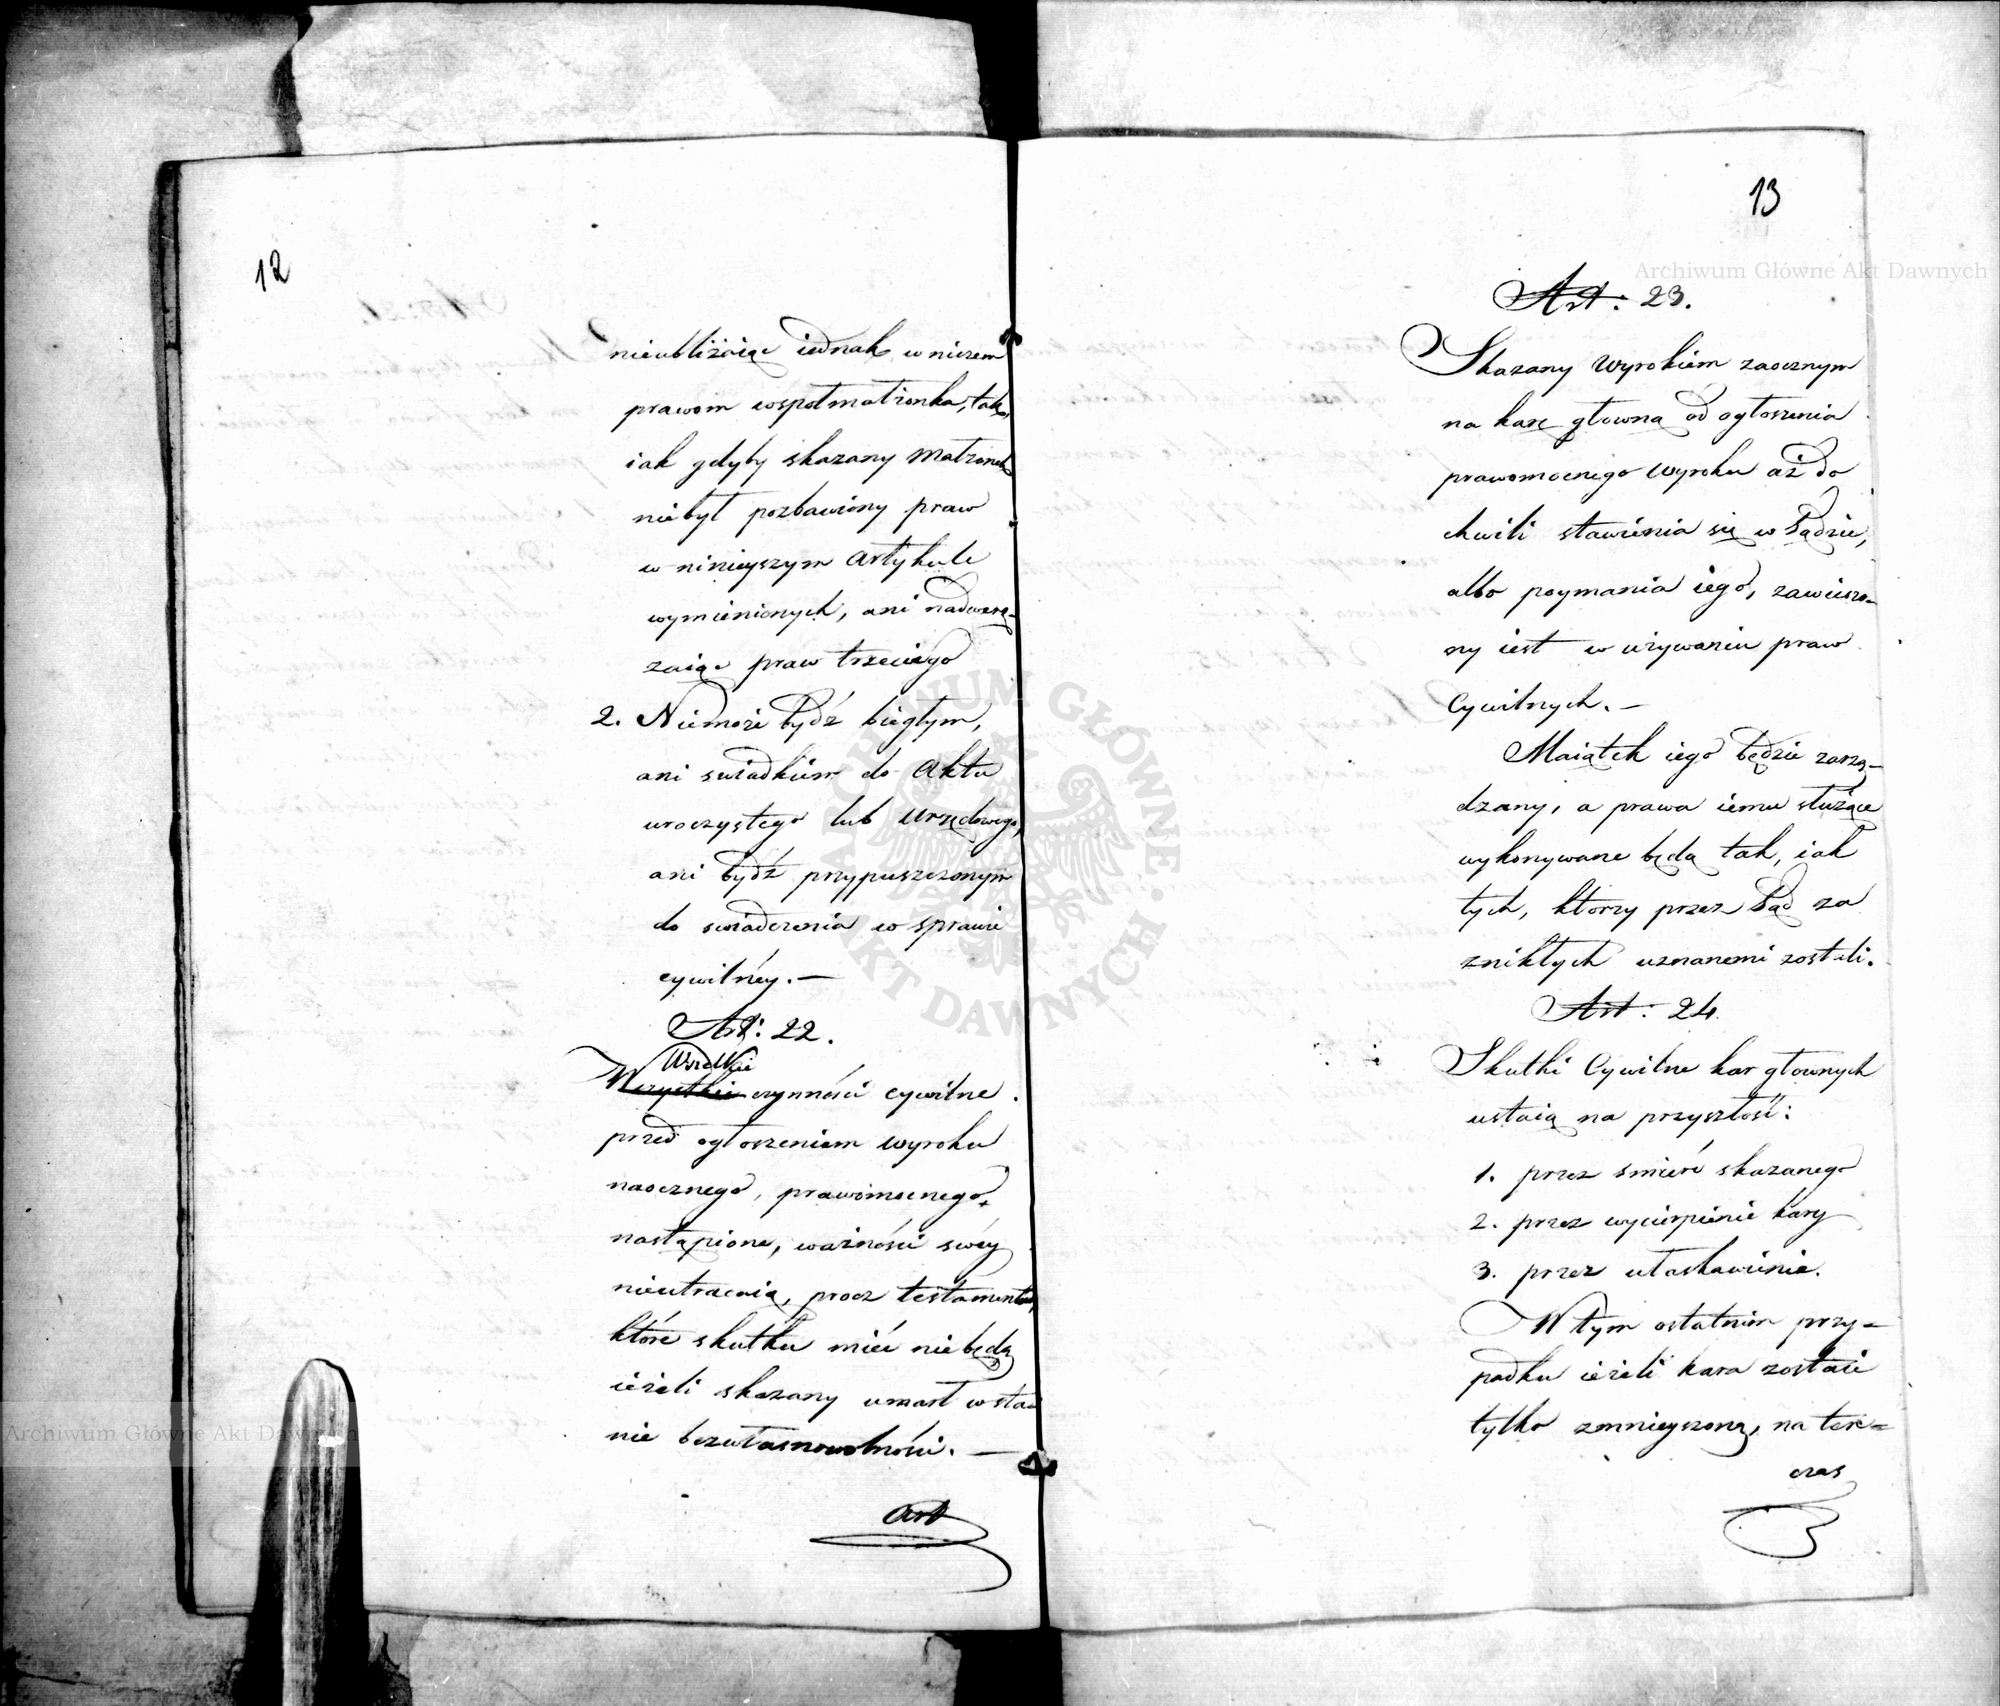 12
nieubliżaiąc iednak w niczem
prawom wspołmałżonka, tak,
iak gdyby skazany Małżonek
niebył pozbawiony praw
w ninieyszym Artykule
wymienionych, ani nadwerę-
żaiąc praw trzeciego
2. Niemoże bydź biegłym,
ani swiadkiem do Aktu
uroczystego lub Urzędowego,
ani bydź przypuszczonym
do swiadczenia w sprawie
cywilnéy. —
Art: 22.
Wszelkie
Wszystkie czynności cywilne
przed ogłoszeniem wyroku
naocznego, prawomocnego,
nastąpione, ważności swéy
nieutracaią, procz testamentu,
które skutku mieć niebędą
ieżeli skazany umarł w sta-
nie bezwłasnowolności. —
Art
13
Art: 23.
Skazany Wyrokiem zaocznym
na karę głowną od ogłoszenia
prawomocnego Wyroku aż do
chwili stawienia się w Sądzie,
albo poymania iego, zawieszo-
ny iest w używaniu praw
Cywilnych. —
Maiątek iego będzie zarzą-
dzany, a prawa iemu służące
wykonywane będą tak, iak
tych, ktorzy przez Sąd za
znikłych uznanemi zostali.
Art: 24.
Skutki Cywilne kar głownych
ustaią na przyszłość:
1. przez smierć skazanego
2. przez wycierpienie kary
3. przez ułaskawienie.
W tym ostatnim przy-
padku ieżeli kara zostaie
tylko zmnieyszoną, na ten-
czas
Archiwum Główne Akt Dawnych
Archiwum Główne Akt Dawnych
ARCHIWUM GŁÓWNE AKT DAWNYCH